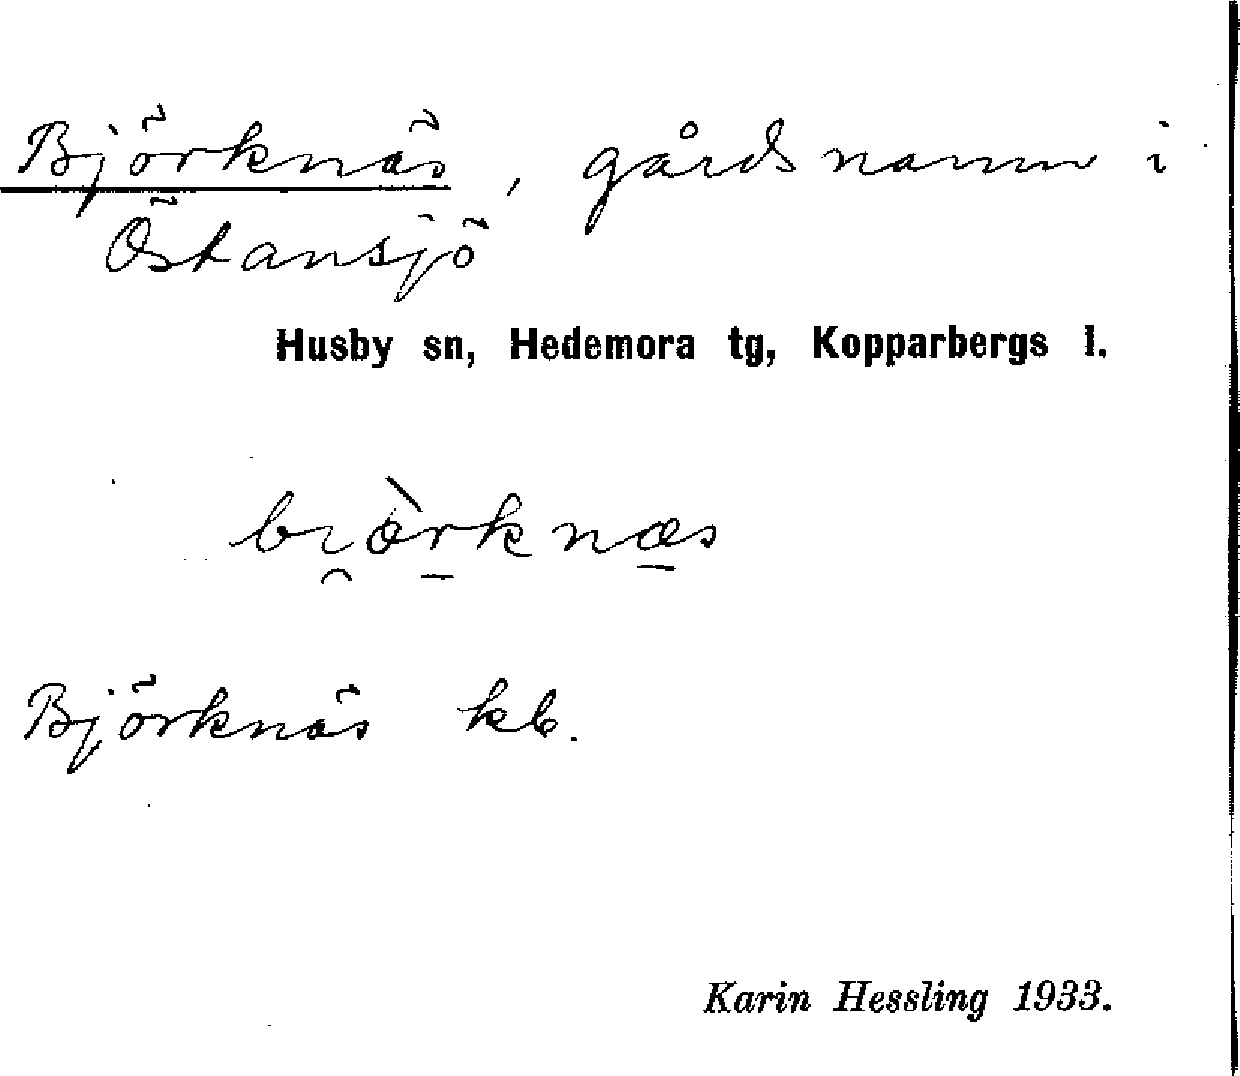 Björknäs, gårdsnamn i
Östansjö
Husby sn, Hedemora tg, Kopparbergs l.
bi̯æ̀r̲knæ̲s
Björknäs kb.
Karin Hessling 1933.